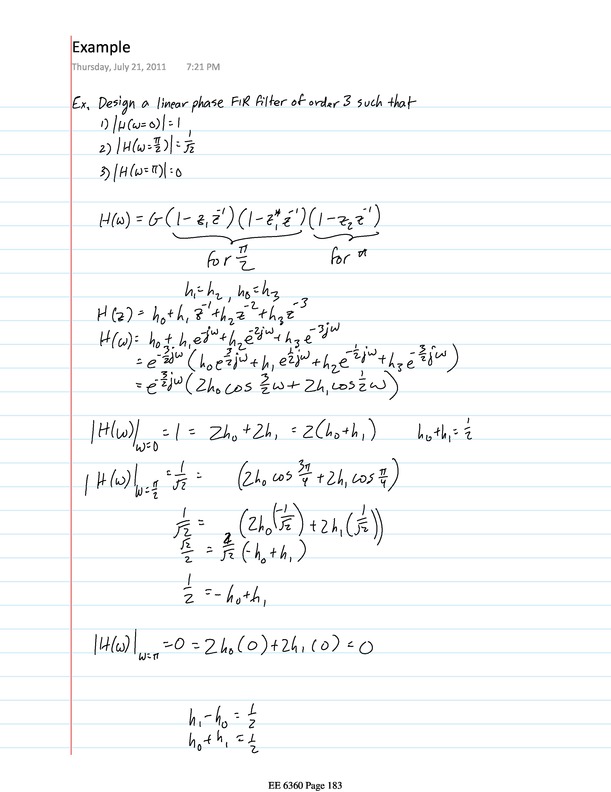 Example
Thursday, July 21, 2011 7:21 PM
Ex. Design a linear phase FIR filter of order 3 such that
1) |H(ω=0)|=1
2) |H(ω=π/2)|=1/√2
3) |H(ω=π)|=0
H(ω) = G(1-z₁z⁻¹)(1-z₁*z⁻¹)(1-z₂z⁻¹)
for π/2 for π
h₁=h₂, h₀=h₃
H(z) = h₀+h₁z⁻¹+h₂z⁻²+h₃z⁻³
H(ω)= h₀+h₁e^-jω+h₂e^-2jω+h₃e^-3jω
= e^-3/2jω (h₀e^3/2jω+h₁e^1/2jω+h₂e^-1/2jω+h₃e^-3/2jω)
= e^-3/2jω (2h₀ cos 3/2ω + 2h₁ cos 1/2ω)
|H(ω)|ω=0 = 1 = 2h₀+2h₁ = 2(h₀+h₁) h₀+h₁=1/2
|H(ω)|ω=π/2 = 1/√2 = (2h₀ cos 3π/4 + 2h₁ cos π/4)
1/√2 = (2h₀(-1/√2) + 2h₁(1/√2))
√2/2 = 2/√2 (-h₀+h₁)
1/2 = -h₀+h₁
|H(ω)|ω=π =0 = 2h₀(0)+2h₁(0) = 0
h₁-h₀ = 1/2
h₀+h₁ = 1/2
EE 6360 Page 183